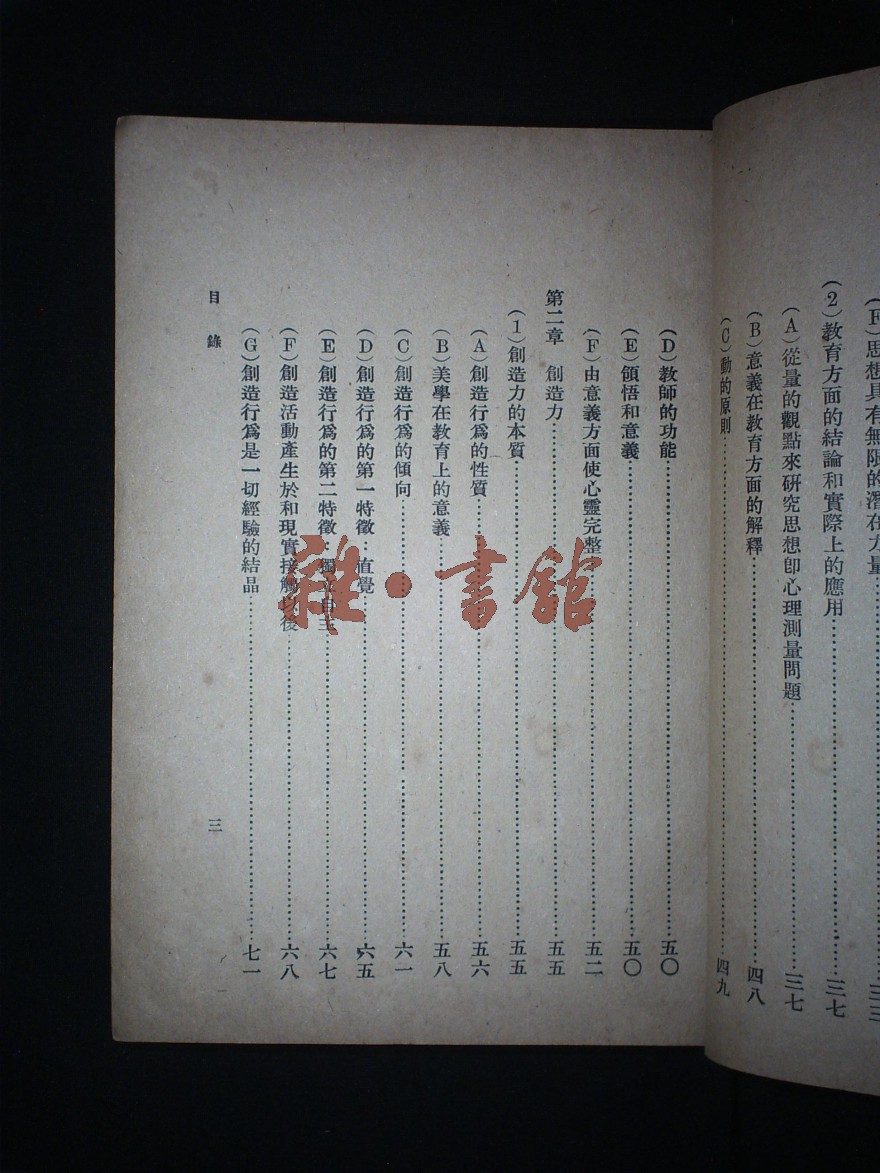 (F)思想具有無限的潛在力量……三三
(2)教育方面的結論和實際上的應用……三七
(A)從量的觀點來研究思想卽心理測量問題……三七
(B)意義在教育方面的解釋……四八
(C)動的原則……四九
(D)教師的功能……五〇
(E)領悟和意義……五〇
(F)由意義方面使心靈完整……五二
第二章　創造力……五五
(1)創造力的本質……五五
(A)創造行爲的性質……五六
(B)美學在教育上的意義……五八
(C)創造行爲的傾向……六一
(D)創造行爲的第一特徵：直覺……六五
(E)創造行爲的第二特徵：獨立自主……六七
(F)創造活動產生於和現實接觸以後……六八
(G)創造行爲是一切經驗的結晶……七一
目錄
三
雜·書館